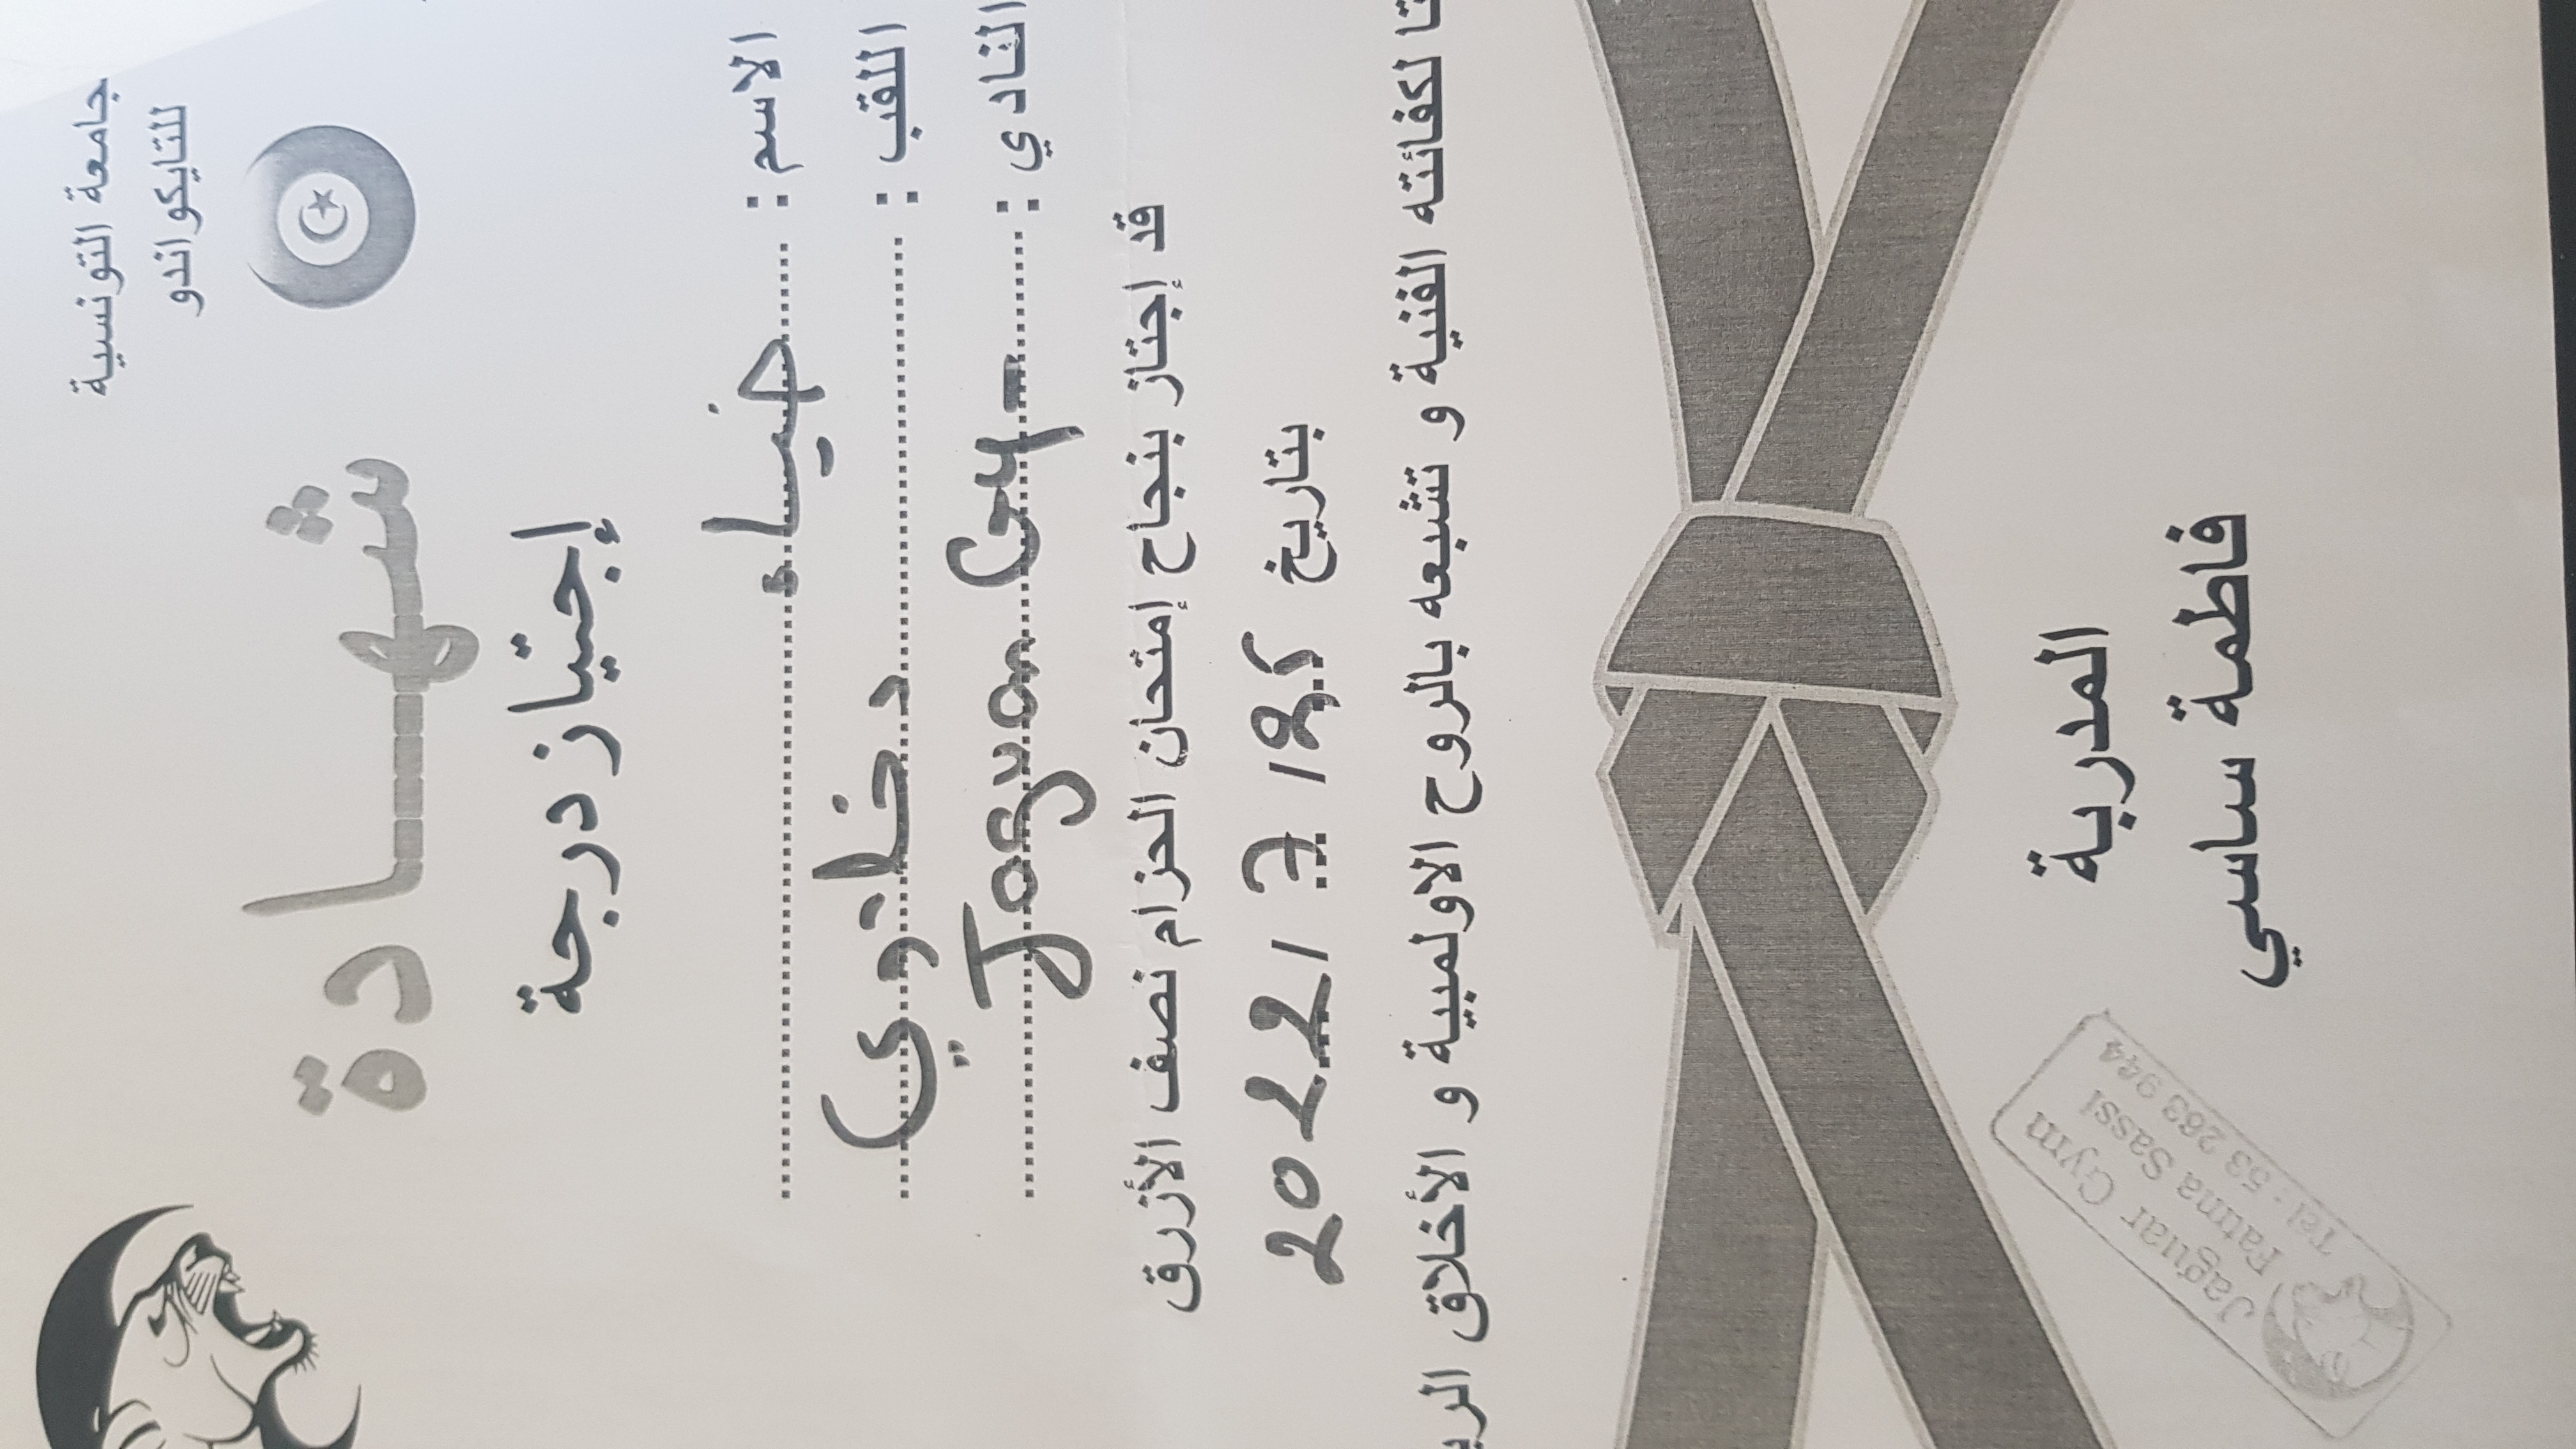 جامعة التونسية
للتايكواندو
شهادة
إجتياز درجة
الاسم : ضياء
اللقب : دخلاوي
النادي : Jaguar Gym
قد إجتاز بنجاح إمتحان الحزام نصف الأزرق
بتاريخ 2022/7/25
لكفائته الفنية و تشبعه بالروح الاولمبية و الأخلاق
المدربة
فاطمة ساسي
Jaguar Gym
Fatma Sassi
Tel : 53 263 944